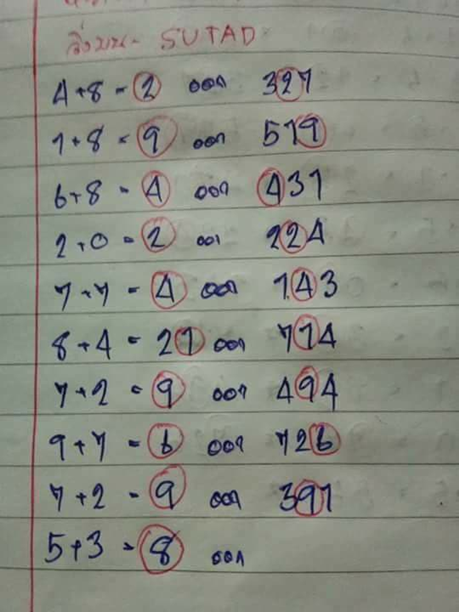 วิ่งบน - SUTAD
4+8 = 2 ออก 321
1+8 = 9 ออก 519
6+8 = 4 ออก 431
2+0 = 2 ออก 224
7+7 = 4 ออก 143
8+4 = 21 ออก 714
7+2 = 9 ออก 494
9+7 = 6 ออก 726
7+2 = 9 ออก 391
5+3 = 8 ออก